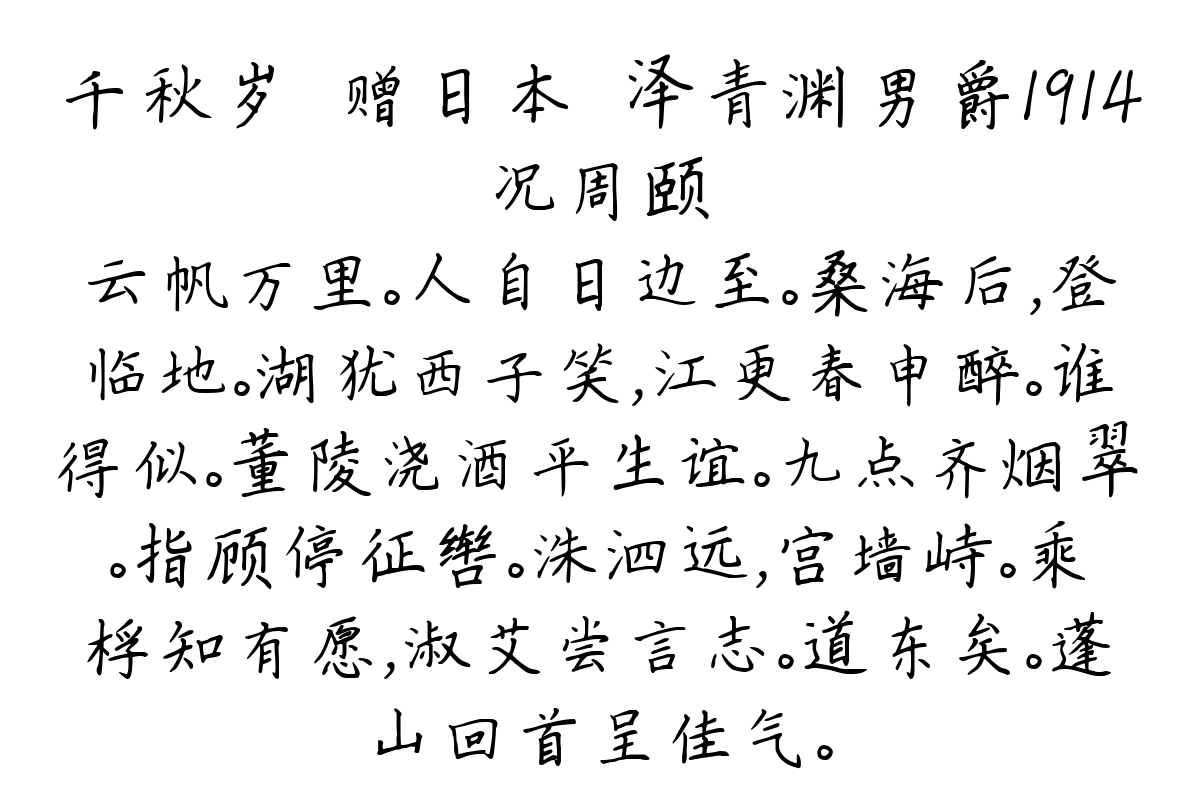 千秋岁 赠日本 泽青渊男爵1914
况周颐
云帆万里。人自日边至。桑海后,登
临地。湖犹西子笑,江更春申醉。谁
得似。董陵浇酒平生谊。九点齐烟翠
。指顾停征辔。洙泗远,宫墙峙。乘
桴知有愿,淑艾尝言志。道东矣。蓬
山回首呈佳气。